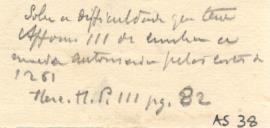 Sobre a difficuldade que teve
Affonso III de cunhar a
moeda autorisada pelas cortes de
1261
Herc. H. P. III pg. 82
AS 38